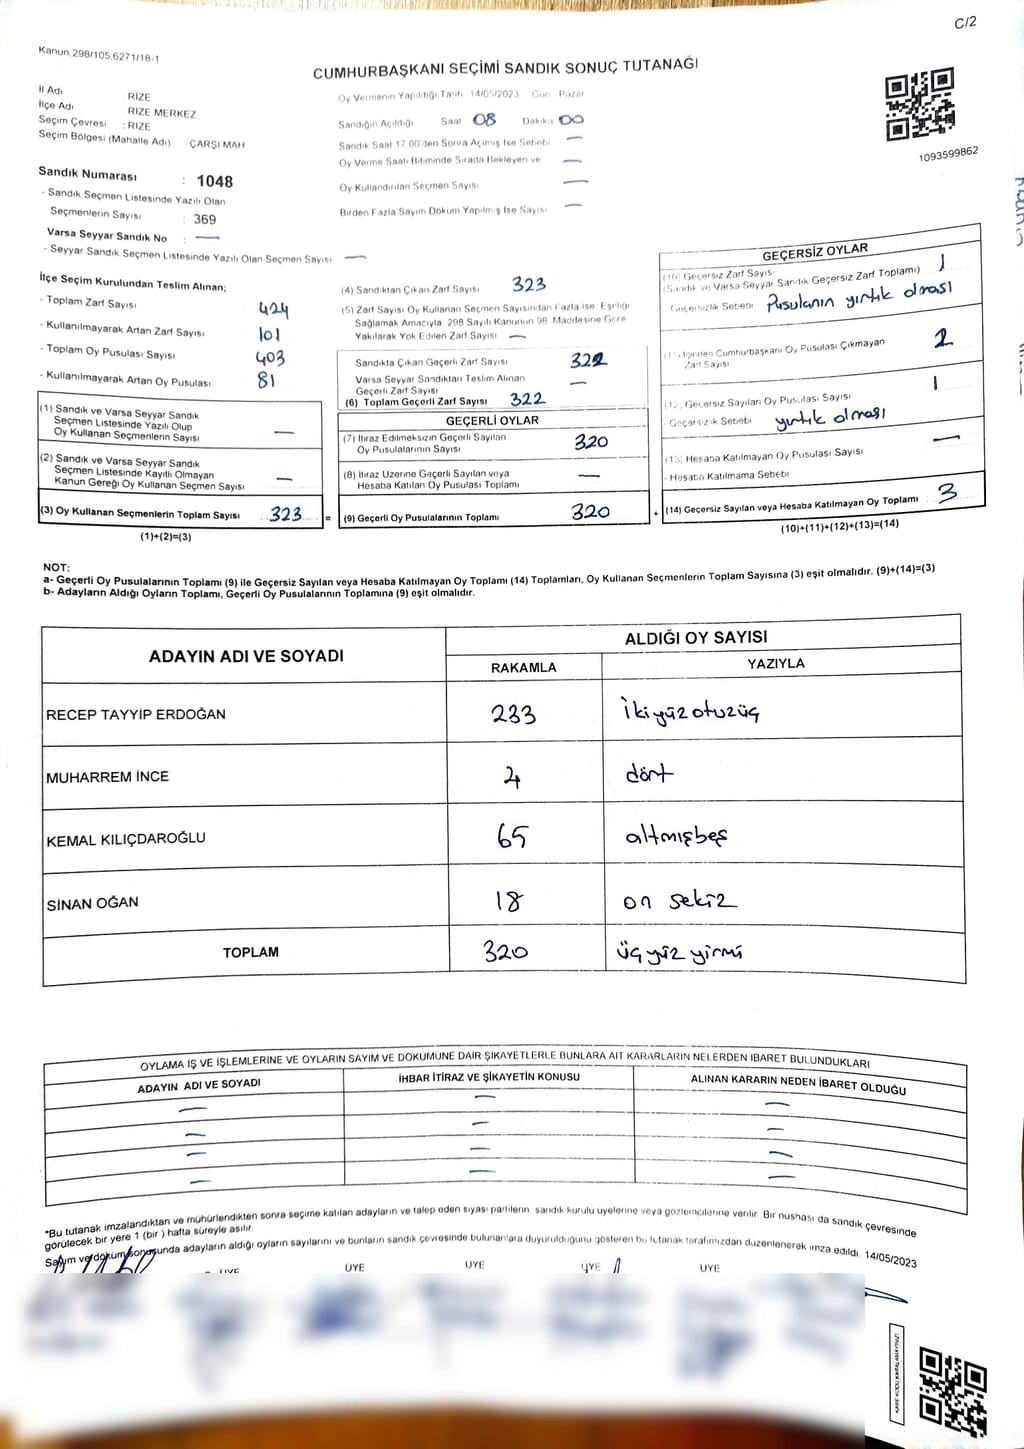 C/2
Kanun.298/105,6271/18-1
CUMHURBAŞKANI SEÇİMİ SANDIK SONUÇ TUTANAĞI
İl Adı RİZE
İlçe Adı RİZE MERKEZ
Seçim Çevresi : RİZE
Seçim Bölgesi (Mahalle Adı) ÇARŞI MAH
Sandık Numarası : 1048
- Sandık Seçmen Listesinde Yazılı Olan
Seçmenlerin Sayısı : 369
Varsa Seyyar Sandık No : —
- Seyyar Sandık Seçmen Listesinde Yazılı Olan Seçmen Sayısı —
Oy Vermenin Yapıldığı Tarih 14/05/2023 Gün Pazar
Sandığın Açıldığı Saat 08 Dakika 00
Sandık Saat 17.00'den Sonra Açılmış İse Sebebi —
Oy Verme Saati Bitiminde Sırada Bekleyen ve —
Oy Kullandırılan Seçmen Sayısı —
Birden Fazla Sayım Döküm Yapılmış İse Sayısı —
1093599862
İlçe Seçim Kurulundan Teslim Alınan;
- Toplam Zarf Sayısı 424
- Kullanılmayarak Artan Zarf Sayısı 101
- Toplam Oy Pusulası Sayısı 403
- Kullanılmayarak Artan Oy Pusulası 81
(1) Sandık ve Varsa Seyyar Sandık
Seçmen Listesinde Yazılı Olup
Oy Kullanan Seçmenlerin Sayısı —
(2) Sandık ve Varsa Seyyar Sandık
Seçmen Listesinde Kayıtlı Olmayan
Kanun Gereği Oy Kullanan Seçmen Sayısı —
(3) Oy Kullanan Seçmenlerin Toplam Sayısı 323 =
(1)+(2)=(3)
(4) Sandıktan Çıkan Zarf Sayısı 323
(5) Zarf Sayısı Oy Kullanan Seçmen Sayısından Fazla ise Eşitliği
Sağlamak Amacıyla 298 Sayılı Kanunun 98. Maddesine Göre
Yakılarak Yok Edilen Zarf Sayısı —
Sandıkta Çıkan Geçerli Zarf Sayısı 322
Varsa Seyyar Sandıktan Teslim Alınan
Geçerli Zarf Sayısı —
(6) Toplam Geçerli Zarf Sayısı 322
GEÇERLİ OYLAR
(7) İtiraz Edilmeksizin Geçerli Sayılan
Oy Pusulalarının Sayısı 320
(8) İtiraz Üzerine Geçerli Sayılan veya
Hesaba Katılan Oy Pusulası Toplamı —
(9) Geçerli Oy Pusulalarının Toplamı 320 +
GEÇERSİZ OYLAR
(10) Geçersiz Zarf Sayısı
(Sandık ve Varsa Seyyar Sandık Geçersiz Zarf Toplamı) 1
Geçersizlik Sebebi Pusulanın yırtık olması
(11) İçinden Cumhurbaşkanı Oy Pusulası Çıkmayan
Zarf Sayısı 2
(12) Geçersiz Sayılan Oy Pusulası Sayısı 1
- Geçersizlik Sebebi yırtık olması
(13) Hesaba Katılmayan Oy Pusulası Sayısı —
- Hesaba Katılmama Sebebi
(14) Geçersiz Sayılan veya Hesaba Katılmayan Oy Toplamı 3
(10)+(11)+(12)+(13)=(14)
NOT:
a- Geçerli Oy Pusulalarının Toplamı (9) ile Geçersiz Sayılan veya Hesaba Katılmayan Oy Toplamı (14) Toplamları, Oy Kullanan Seçmenlerin Toplam Sayısına (3) eşit olmalıdır. (9)+(14)=(3)
b- Adayların Aldığı Oyların Toplamı, Geçerli Oy Pusulalarının Toplamına (9) eşit olmalıdır.
ADAYIN ADI VE SOYADI ALDIĞI OY SAYISI
RAKAMLA YAZIYLA
RECEP TAYYİP ERDOĞAN 233 İkiyüzotuzüç
MUHARREM İNCE 4 dört
KEMAL KILIÇDAROĞLU 65 altmışbeş
SİNAN OĞAN 18 on sekiz
TOPLAM 320 üçyüz yirmi
OYLAMA İŞ VE İŞLEMLERİNE VE OYLARIN SAYIM VE DÖKÜMÜNE DAİR ŞİKAYETLERLE BUNLARA AİT KARARLARIN NELERDEN İBARET BULUNDUKLARI
ADAYIN ADI VE SOYADI İHBAR İTİRAZ VE ŞİKAYETİN KONUSU ALINAN KARARIN NEDEN İBARET OLDUĞU
— — —
— — —
— — —
— — —
*Bu tutanak imzalandıktan ve mühürlendikten sonra seçime katılan adayların ve talep eden siyasi partilerin sandık kurulu üyelerine veya gözlemcilerine verilir. Bir nüshası da sandık çevresinde
görülecek bir yere 1 (bir) hafta süreyle asılır.
Sayım ve döküm sonucunda adayların aldığı oyların sayılarını ve bunların sandık çevresinde bulunanlara duyurulduğunu gösteren bu tutanak tarafımızdan düzenlenerek imza edildi. 14/05/2023
ÜYE ÜYE ÜYE ÜYE ÜYE